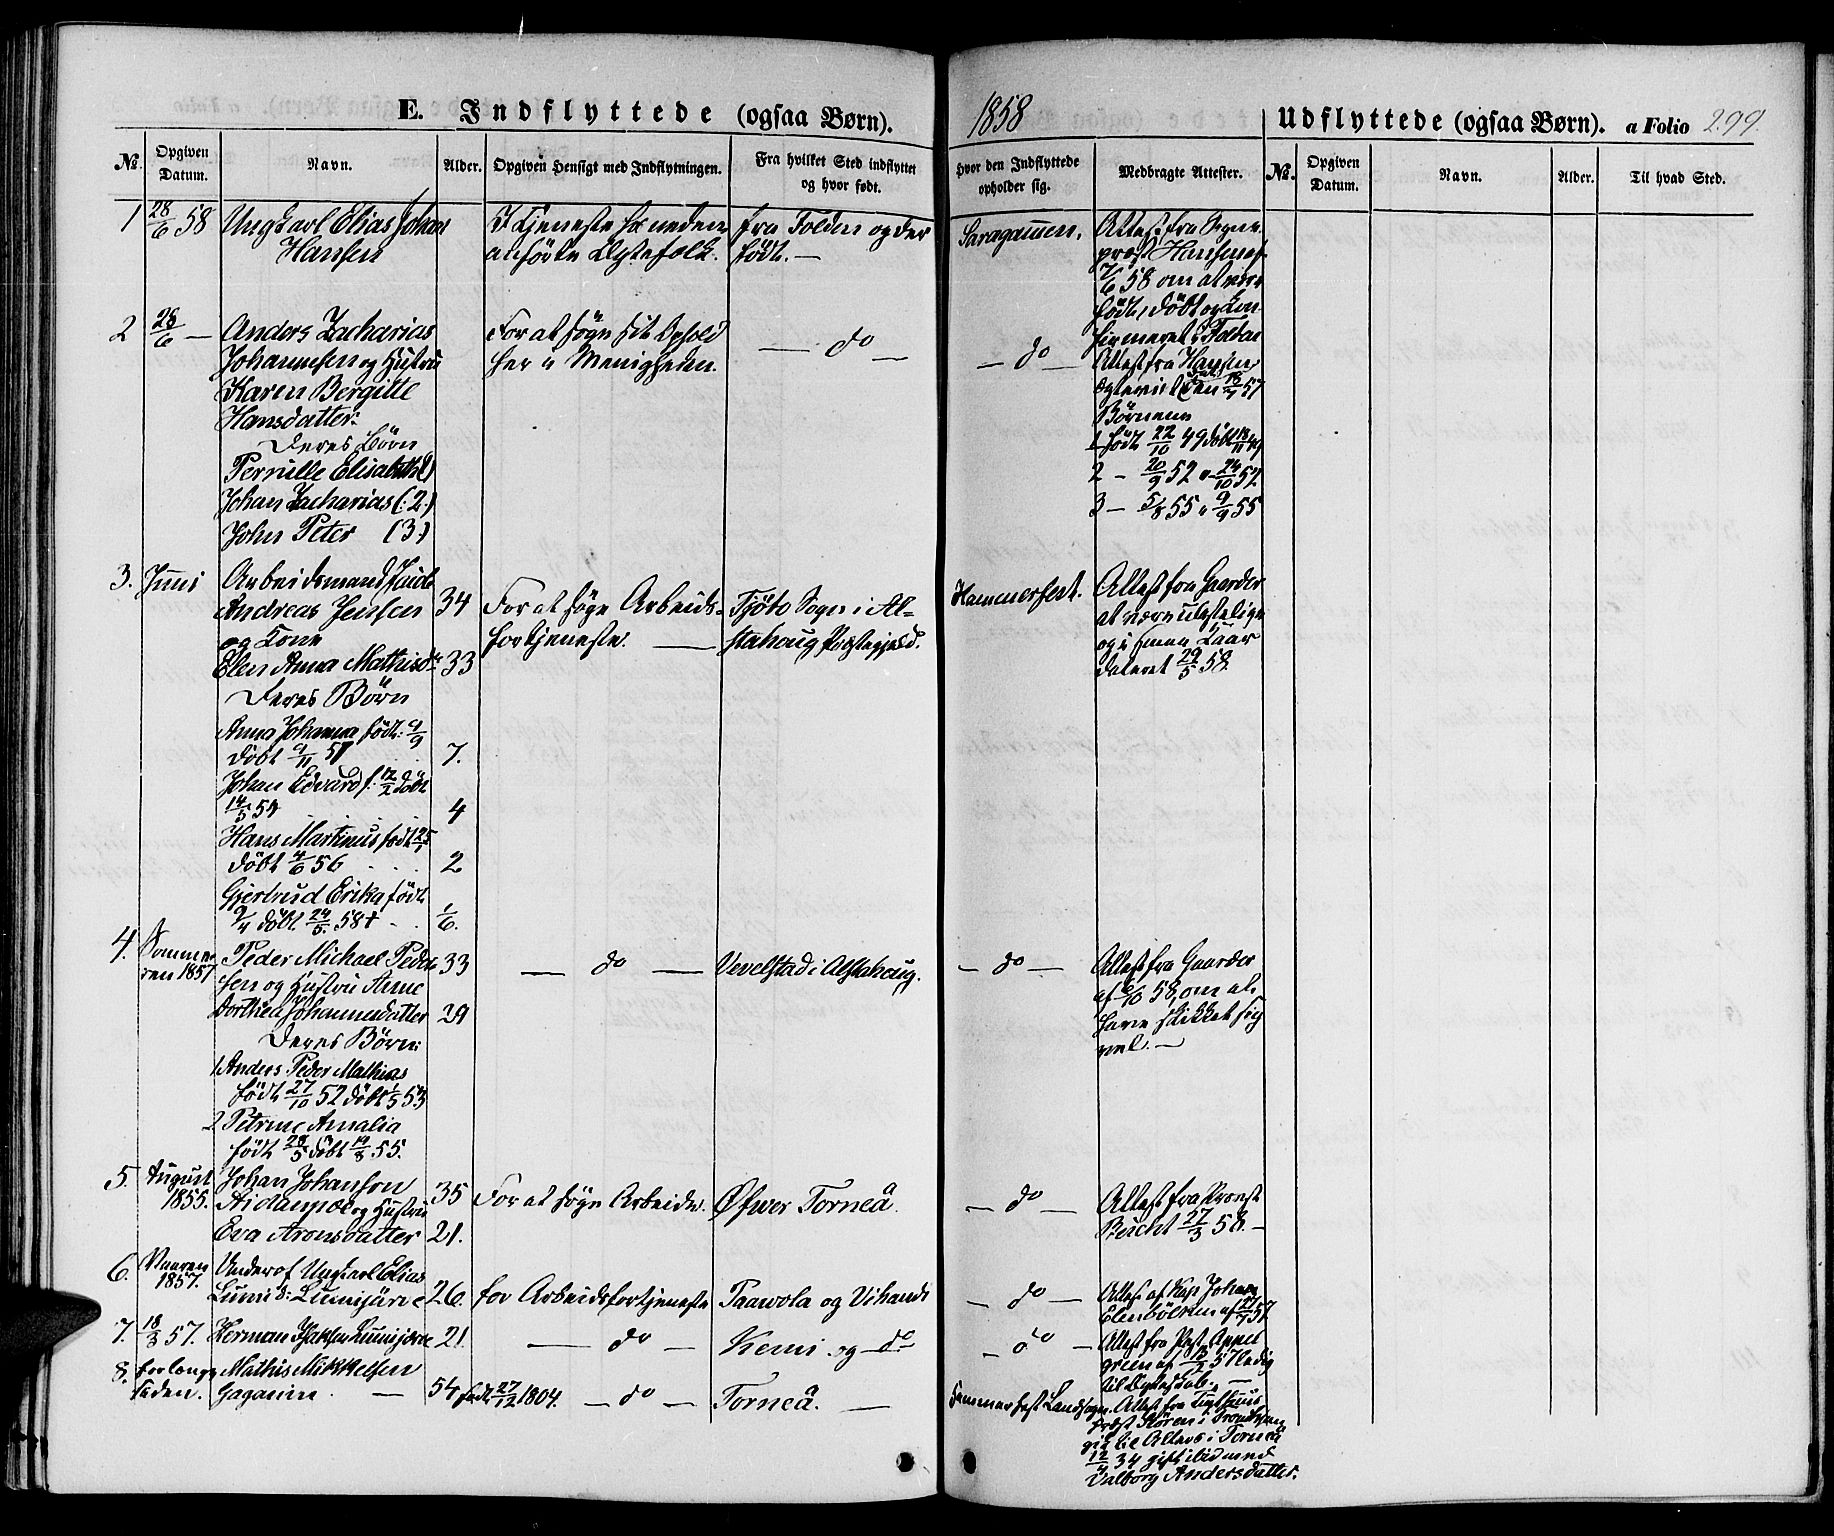 E. Indflyttede (ogsaa Børn).
1858
Udflyttede (ogsaa Børn). a Folio 299.
No. Opgiven Datum. Navn. Alder. Opgiven Hensigt med Indflytningen. Fra hvilket Sted indflyttet og hvor født. Hvor den Indflyttede opholder sig. Medbragte Attester. No. Opgiven Datum. Navn. Alder. Til hvad Sted.
1 28/6 58 Ungkarl Elias Johan
Hansen
I Tjeneste hos neden
anførte Ægtefolk.
fra Folden og der
født. —
Attest fra Sogne
præst Hansen af
7/6 58 om at være
født, døbt og Con
firmeret i Folden
2 28/6 — Anders Zacharias
Johannesen og Hustru
Karen Bergitte
Hansdatter:
Deres Børn
Pernille Elisabeth (1)
Johan Zacharias (:2.)
John Peter (3)
For at søge sit Ophold
her i Menigheden.
— do —
— do —
Attest fra Hansen
Børnene
1 født 22/10 49 døbt
2 — 20/9 52 " 24/10 52
3 — 5/8 55 " 9/9 55
3. Juni Arbeidsmand
Andreas Jensen 34
og Kone
Elen Anna Mathisd: 33
Deres Børn
Anna Johanna født: 9/9
døbt 9/11 51 7.
Johan Edvard f. 12/2 døbt
14/5 54 4
Hans Martinus født 25/1
døbt 4/6 56 2
Gjertrud Erika født
9/4 døbt 24/5. 58 1/6.
For at søge Arbeids-
fortjeneste. —
Tjøtø Sogn i Al-
stahoug Præstegjeld.
Hammerfest.
Attest fra Gaarder
at være ustraffelige
og i smaa Kaar
dateret 29/5 58.
4. Sommeren 1857 Peder Michael Peder 33
sen og Hustru Anne
Dorthea Johannesdatter 29
Deres Børn:
1 Anders Peder Mathias
født 27/10 52 døbt 1/5 53
2 Petrine Amalia
født 28/5 døbt 19/8 55.
— do —
Vevelstad i Alstahoug.
— do —
Attest fra Gaarder
af 6/10 58, om at
have skikket sig
vel. —
5. August 1855. Johan Johansen 35
og Hustru
Eva Aronsdatter 21.
For at søge Arbeide.
Øfwer Torneå.
— do —
Attest fra Provst
27/3 58. —
6. Vaaren 1857. Ungkarl Elias
Lumi d: Lumijärvi 26.
for Arbeidsfortjeneste
Paawola og Vihandi
— do —
Attest af Kap Johan
7. 18/3 57. Herman Isaksen Lumijärvi 21.
— do —
Kemi og do
— do —
Attest fra Past. Appel
gren af 13/2 57 ledig
til Ægteskab. —
8. for længe siden. Mathis Mikkelsen
Gaganien. — 54 født 27/12 1804.
— do —
Torneå. —
Hammerfest Landsogn.
Attest fra
præst Støren i
gik til Alters i Torneå
12/4 34 gift ibid med
Valborg Andersdatter.